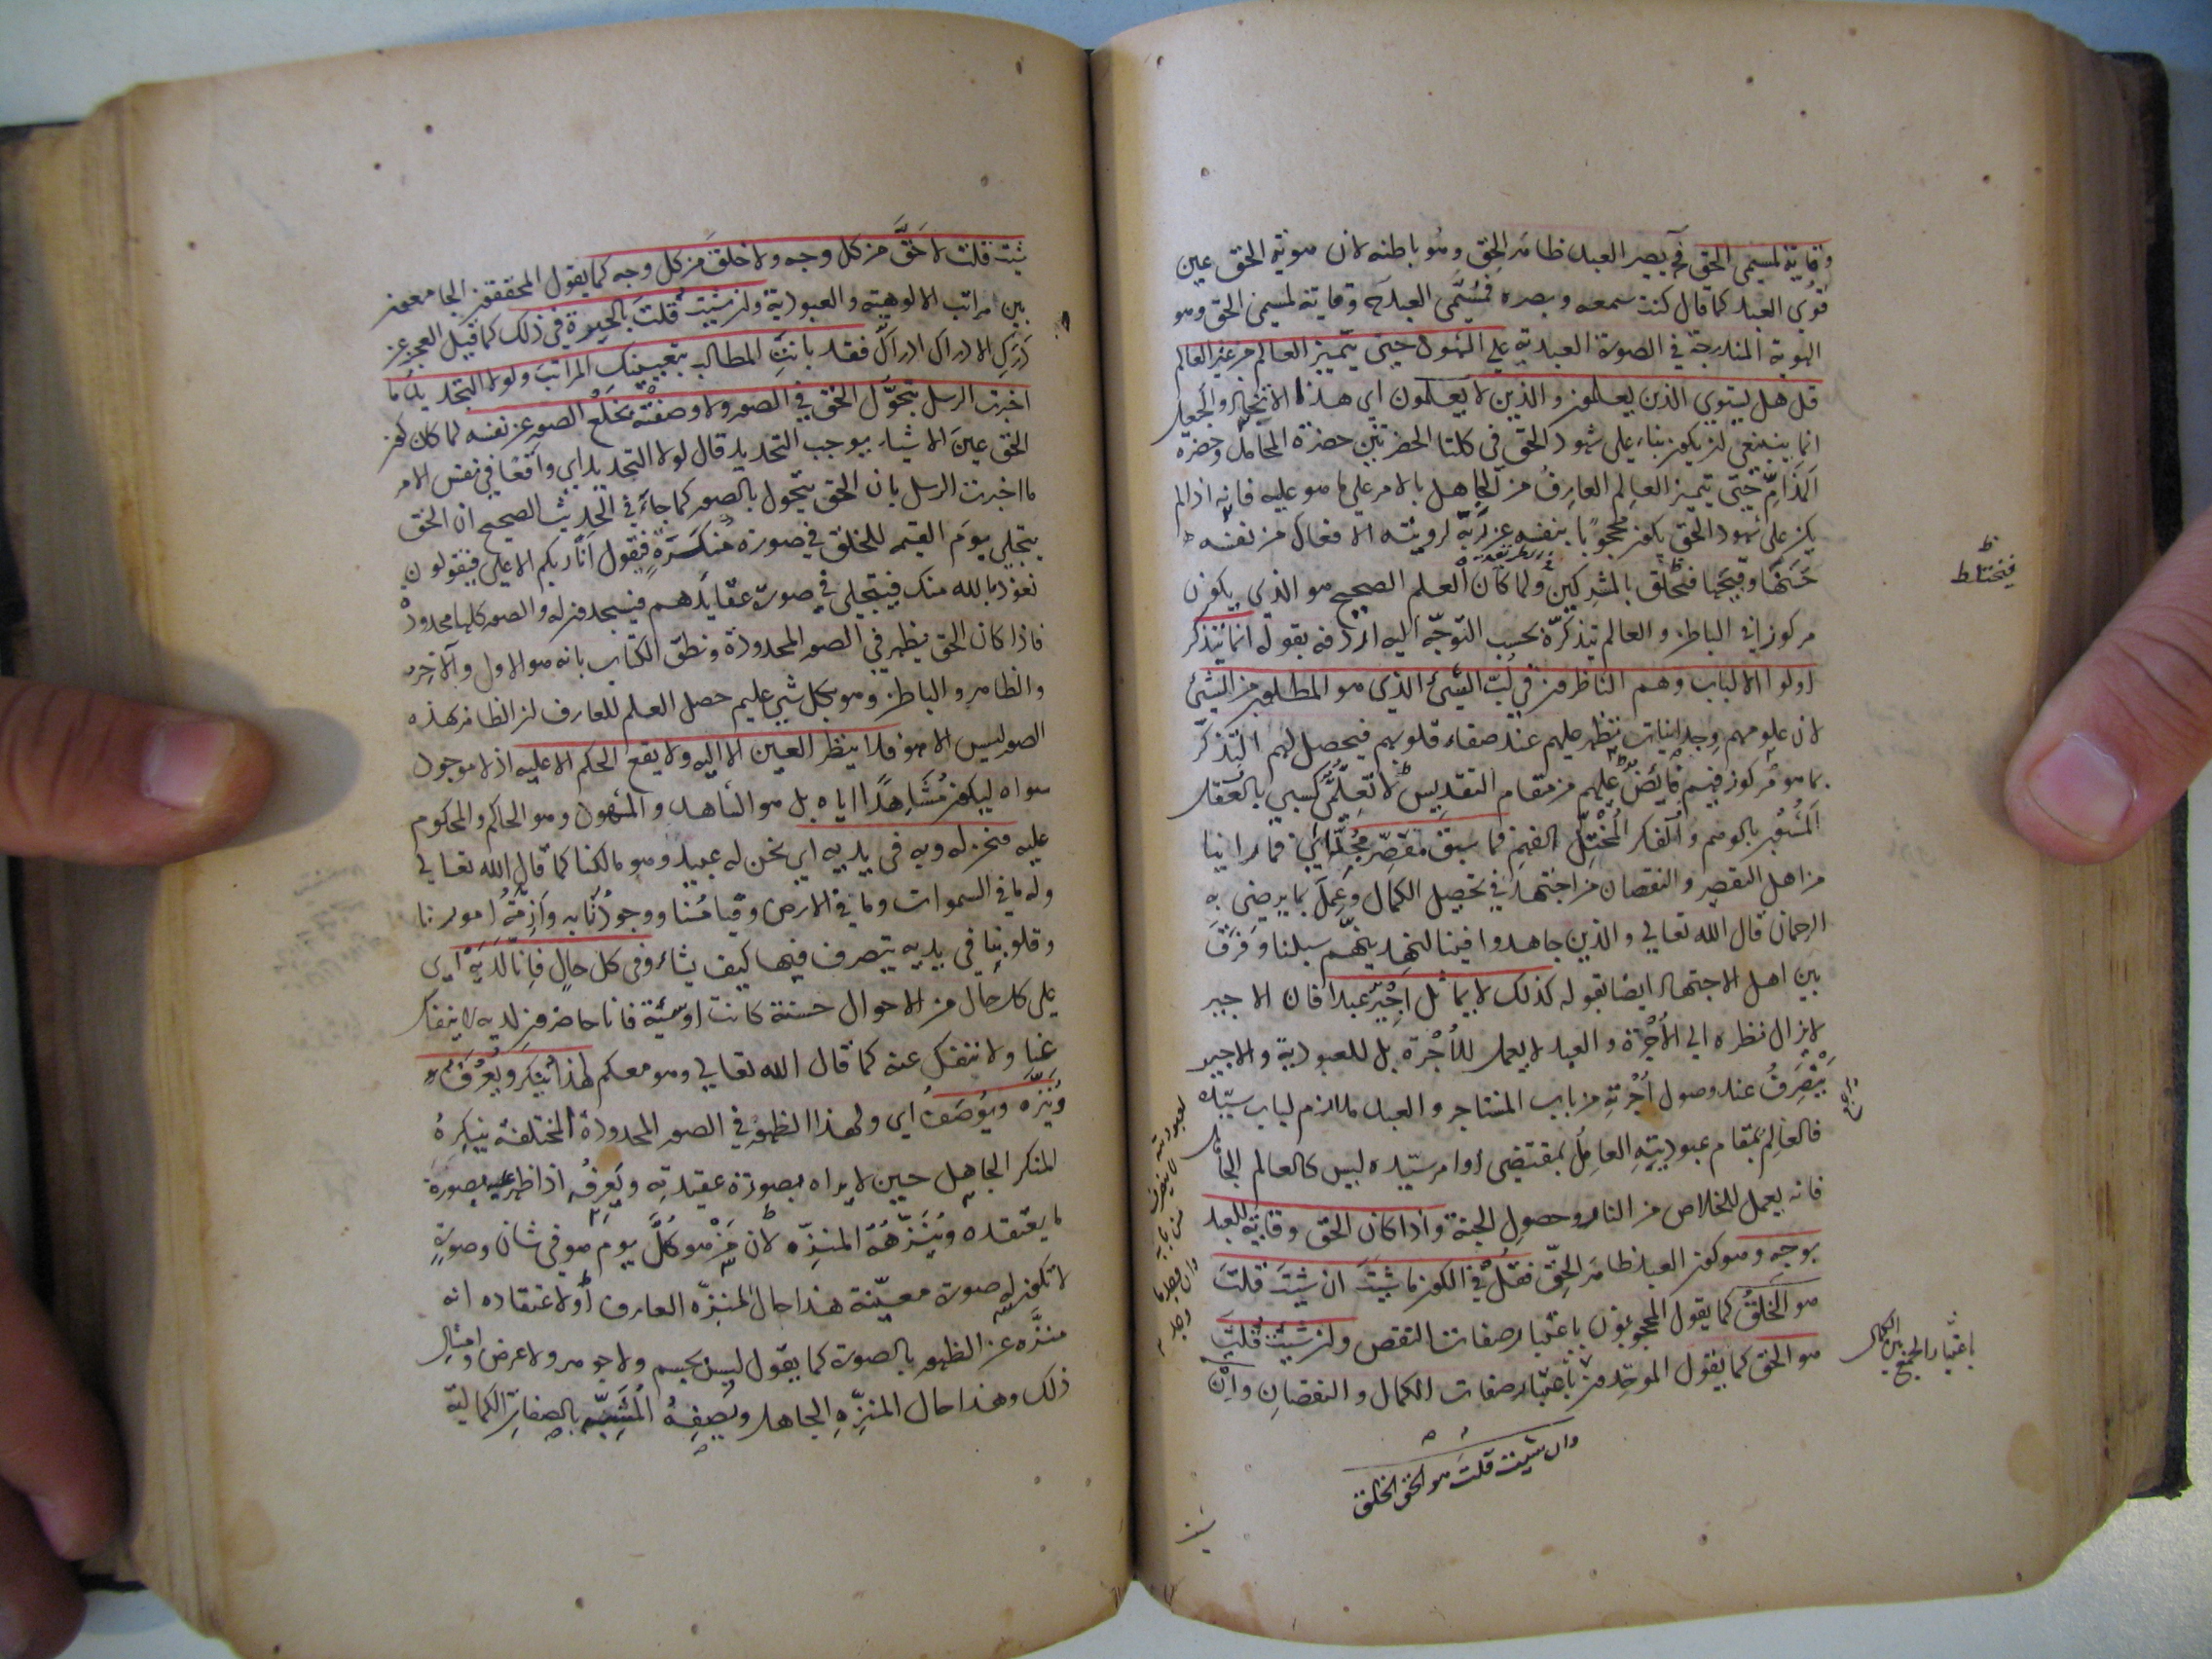 وقاية لمسمى الحق فح يصير العبد ظاهر الحق وهو باطنه لان هوية الحق عين
قوى العبد كما قال كنت سمعه وبصره فمسمى العبد ح وقاية لمسمى الحق وهو
الهوية المندرجة في الصورة العبدية على الشهود حتى يتميز العالم من غير العالم
قل هل يستوي الذين يعلمون والذين لا يعلمون اي هذا الاتخاذ والجعل
انما ينبغي ان يكون بناء على شهود الحق في كلتا الحضرتين حضرة المحامد وحضرة
المذام حتى يتميز العالم العارف من الجاهل بالامر على ما هو عليه فانه اذا لم
يكن على شهود الحق يكون محجوبا بنفسه عن ربه لرويته الافعال من نفسه
حسنها وقبيحها فتحلق بالمشركين ولما كان العلم الصحيح هو الذي يكون
مركوزا في الباطن والعالم يتذكره بحسب التوجه اليه اردفه بقوله انما يتذكر
اولوا الالباب وهم الناظرون في لب الشئ الذي هو المطلوب من الشئ
لان علومهم وجدانيات تظهر عليهم عند صفاء قلوبهم فيحصل لهم التذكر
بما هو مركوز فيهم فائض عليهم من مقام التقديس لا تعلم كسبي بالعقل
المشوب بالوهم والفكر المختل الفهم فما سبق مقصر مجدا اي فما راينا
من اهل التقصير والنقصان من اجتهد في تحصيل الكمال وعمل بما يرضى به
الرحمان قال الله تعالى والذين جاهدوا فينا لنهدينهم سبلنا وفرق
بين اهل الاجتهاد ايضا بقوله كذلك لا يماثل اجير عبدا فان الاجير
لا يزال نظره الى الاجرة والعبد لا يعمل للاجرة بل للعبودية والاجير
ينصرف عند وصول اجرته من باب المستاجر والعبد ملازم لباب سيده
فالعالم بمقام عبوديته العامل بمقتضى اوامر سيده ليس كالعالم الجاهل
فانه يعمل للخلاص من النار وحصول الجنة واذا كان الحق وقاية للعبد
بوجه وهو كون العبد ظاهر الحق فقل في الكون ما شيت ان شيت قلت
هو الخلق كما يقول المحجوبون باعتبار صفات النقص وان شيت قلت
هو الحق كما يقول الموحدون باعتبار صفات الكمال والنقصان وان
وان شيت قلت هو الحق الخلق
فيختلط
باعتبار الجمع بين الكمال
شيت قلت لا حق من كل وجه ولا خلق من كل وجه كما يقول المحققون الجامعون
بين مراتب الالوهية والعبودية وان شيت قلت بالحيرة في ذلك كما قيل العجز عن
درك الادراك ادراك فقد بانت المطالب بتعيينك المراتب ولولا التحديد ما
اخبرت الرسل بتحول الحق في الصور ولا وصفته بخلع الصور عن نفسه لما كان كون
الحق عين الاشياء يوجب التحديد قال لولا التحديد اي واقعا في نفس الامر
ما اخبرت الرسل بان الحق يتحول بالصور كما جاء في الحديث الصحيح ان الحق
يتجلى يوم القيمة للخلق في صورة منكرة فيقول انا ربكم الاعلى فيقولون
نعوذ بالله منك فيتجلى في صورة عقايدهم فيسجدون له والصور كلها محدودة
فاذا كان الحق يظهر في الصور المحدودة ونطق الكتاب بانه هو الاول والآخر
والظاهر والباطن وهو بكل شي عليم حصل العلم للعارف ان الظاهر بهذه
الصور ليس الا هو فلا ينظر العين الا اليه ولا يقع الحكم الا عليه اذ لا موجود
سواه ليكون مشاهدا اياه بل هو الشاهد والمشهود وهو الحاكم والمحكوم
عليه فنحن له وبه في يديه اي نحن له عبيد وهو مالكنا كما قال الله تعالى
وله ما في السموات وما في الارض وقيامنا ووجودنا به وازمة امورنا
وقلوبنا في يديه يتصرف فيها كيف يشاء وفي كل حال فانا لديه اي
على كل حال من الاحوال حسنة كانت او سيئة فانا حاضرون لديه لا ينفك
عنا ولا ننفك عنه كما قال الله تعالى وهو معكم لهذا ينكر ويعرف
وينزه ويوصف اي ولهذا الظهور في الصور المحدودة المختلفة ينكره
المنكر الجاهل حين لا يراه بصورة عقيدته ويعرفه اذا ظهر عليه بصورة
ما يعتقده وينزهه المنزه لان من هو كل يوم هو في شان وصورة
لا تكون له صورة معينة هذا حال المنزه العارف او لاعتقاده انه
منزه عن الظهور بالصورة كما يقول ليس بجسم ولا جوهر ولا عرض وامثال
ذلك وهذا حال المنزه الجاهل ويصفه المشبه بالصفات الكمالية